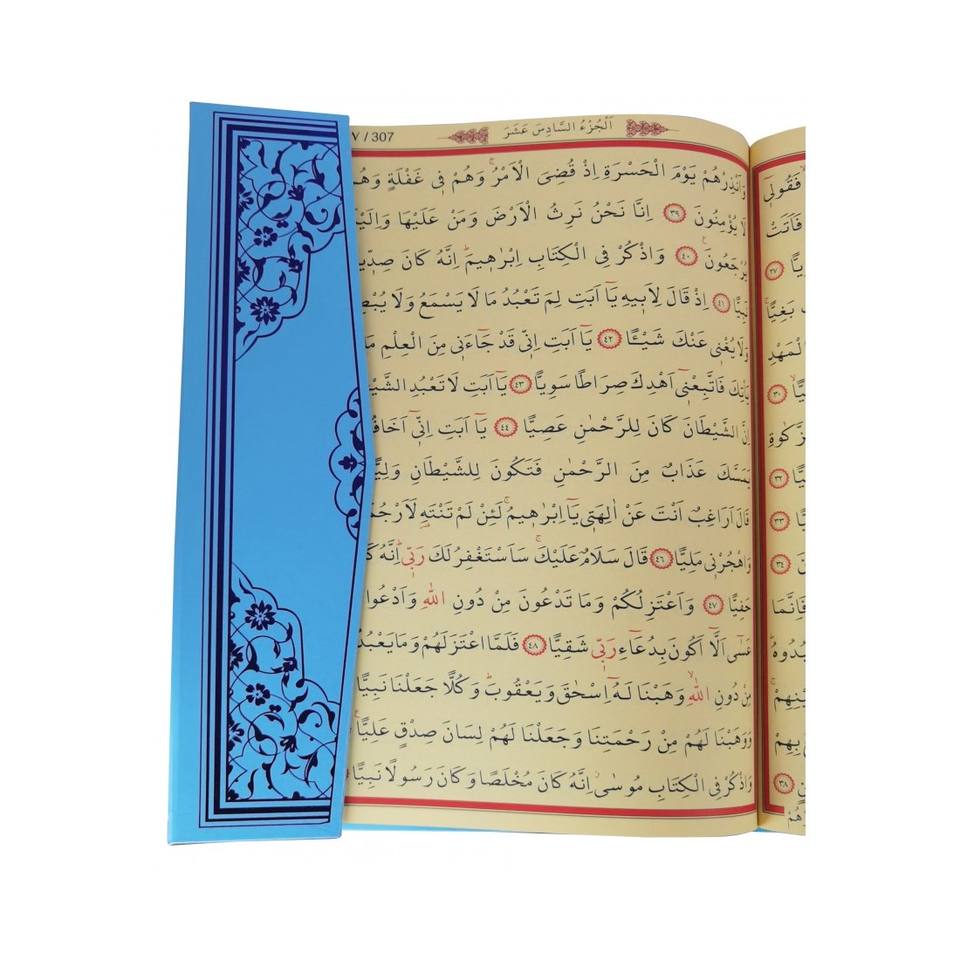 فَقُولٖٓى
فَاَتَتْ
٢٧
بَغِيًّا
لْمَهْدِ
٣٠
٣٢
٣٣
٣٤
فَاِنَّمَا
٣٨
اَلْجُزْءُ السَّادِسَ عَشَرَ / 307
وَاَنْذِرْهُمْ يَوْمَ الْحَسْرَةِ اِذْ قُضِىَ الْاَمْرُۢ وَهُمْ فٖى غَفْلَةٍ وَهُمْ
لَا يُؤْمِنُونَ ٣٩ اِنَّا نَحْنُ نَرِثُ الْاَرْضَ وَمَنْ عَلَيْهَا وَاِلَيْنَا
يُرْجَعُونَ ٤٠ وَاذْكُرْ فِى الْكِتَابِ اِبْرٰهٖيمَ اِنَّهُ كَانَ صِدّٖيقًا
نَبِيًّا ٤١ اِذْ قَالَ لِاَبٖيهِ يَٓا اَبَتِ لِمَ تَعْبُدُ مَا لَا يَسْمَعُ وَلَا يُبْصِرُ
وَلَا يُغْنٖى عَنْكَ شَيْـًٔا ٤٢ يَٓا اَبَتِ اِنّٖى قَدْ جَٓاءَنٖى مِنَ الْعِلْمِ مَا
يَأْتِكَ فَاتَّبِعْنٖٓى اَهْدِكَ صِرَاطًا سَوِيًّا ٤٣ يَٓا اَبَتِ لَا تَعْبُدِ الشَّيْطَانَ
اِنَّ الشَّيْطَانَ كَانَ لِلرَّحْمٰنِ عَصِيًّا ٤٤ يَٓا اَبَتِ اِنّٖٓى اَخَافُ
يَمَسَّكَ عَذَابٌ مِنَ الرَّحْمٰنِ فَتَكُونَ لِلشَّيْطَانِ وَلِيًّا
قَالَ اَرَاغِبٌ اَنْتَ عَنْ اٰلِهَتٖى يَٓا اِبْرٰهٖيمُ لَئِنْ لَمْ تَنْتَهِ لَاَرْجُمَنَّكَ
وَاهْجُرْنٖى مَلِيًّا ٤٦ قَالَ سَلَامٌ عَلَيْكَ سَاَسْتَغْفِرُ لَكَ رَبّٖى اِنَّهُ
حَفِيًّا ٤٧ وَاَعْتَزِلُكُمْ وَمَا تَدْعُونَ مِنْ دُونِ اللّٰهِ وَاَدْعُوا
عَسٰٓى اَلَّٓا اَكُونَ بِدُعَٓاءِ رَبّٖى شَقِيًّا ٤٨ فَلَمَّا اعْتَزَلَهُمْ وَمَا يَعْبُدُونَ
مِنْ دُونِ اللّٰهِ وَهَبْنَا لَهُٓ اِسْحٰقَ وَيَعْقُوبَ وَكُلًّا جَعَلْنَا نَبِيًّا
وَوَهَبْنَا لَهُمْ مِنْ رَحْمَتِنَا وَجَعَلْنَا لَهُمْ لِسَانَ صِدْقٍ عَلِيًّا
وَاذْكُرْ فِى الْكِتَابِ مُوسٰى اِنَّهُ كَانَ مُخْلَصًا وَكَانَ رَسُولًا نَبِيًّا